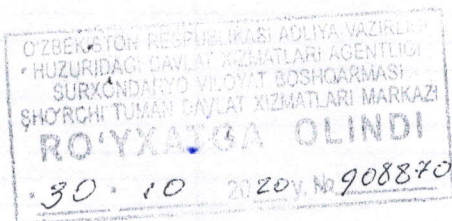 O'ZBEKISTON RESPUBLIKASI ADLIYA VAZIRLIGI
HUZURIDAGI DAVLAT XIZMATLARI AGENTLIGI
SURXONDARYO VILOYAT BOSHQARMASI
SHO'RCHI TUMAN DAVLAT XIZMATLARI MARKAZI
RO'YXATGA OLINDI
30 10 2020 y. № 908870